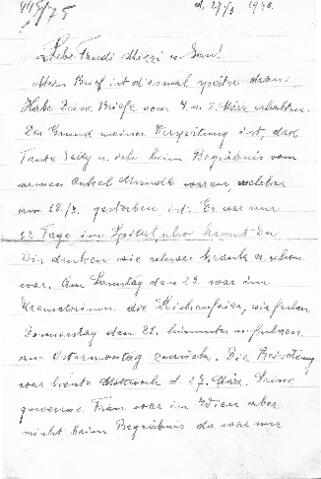 445/75 d. 27/3 1940.
Liebe Trudi Mizzi u.
Mein Brief ist diesmal später daran,
Habe Deine Briefe vom 4. u. 8. März erhalten.
Der Grund meiner Verspätung ist, das
Tante u. ich beim Begräbnis vom
armen Onkel waren, welcher
am 18/3. gestorben ist. Er war nur
12 Tage im Spital, also kannst Du
Dir denken wie schwer krank er schon
war. Am Samstag den 23. war im
Krematorium die Leichenfeier, wir fuhren
Donnerstag den 21. hinunter u. fuhren
am Ostermontag zurück. Die
war heute Mittwoch d. 27. März. Seine
gewesene Frau war in Wien aber
nicht beim Begräbnis da war nur